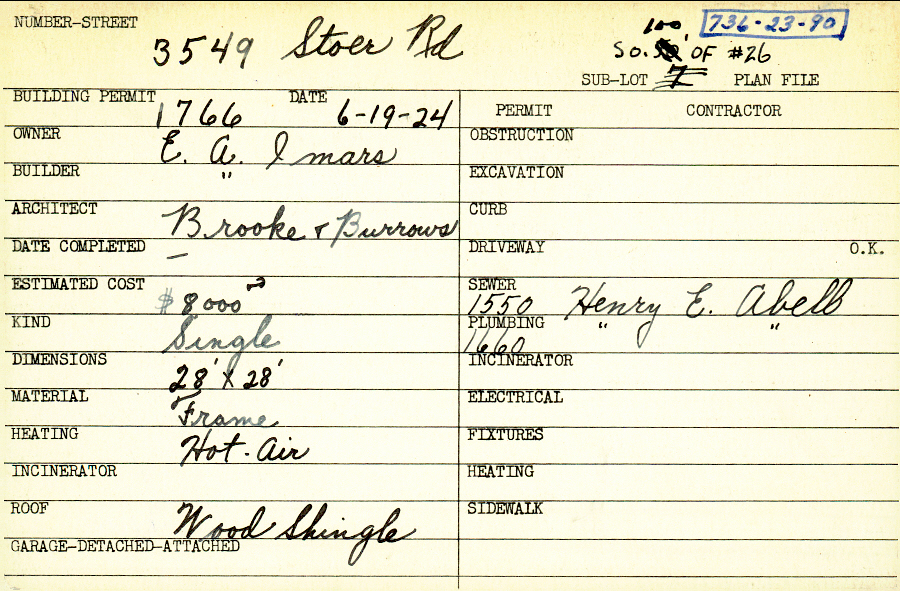 NUMBER-STREET 3549 Stoer Rd
100' 736-23-90
SO. OF #26
SUB-LOT 7 PLAN FILE
BUILDING PERMIT 1766 DATE 6-19-24
PERMIT CONTRACTOR
OWNER E. A. Imars
OBSTRUCTION
BUILDER "
EXCAVATION
ARCHITECT Brooke & Burrows
CURB
DATE COMPLETED –
DRIVEWAY O.K.
ESTIMATED COST $8000
SEWER 1550 Henry E. Abell
KIND Single
PLUMBING 1660 " "
DIMENSIONS 28' X 28'
INCINERATOR
MATERIAL Frame
ELECTRICAL
HEATING Hot-Air
FIXTURES
INCINERATOR
HEATING
ROOF Wood Shingle
SIDEWALK
GARAGE-DETACHED-ATTACHED